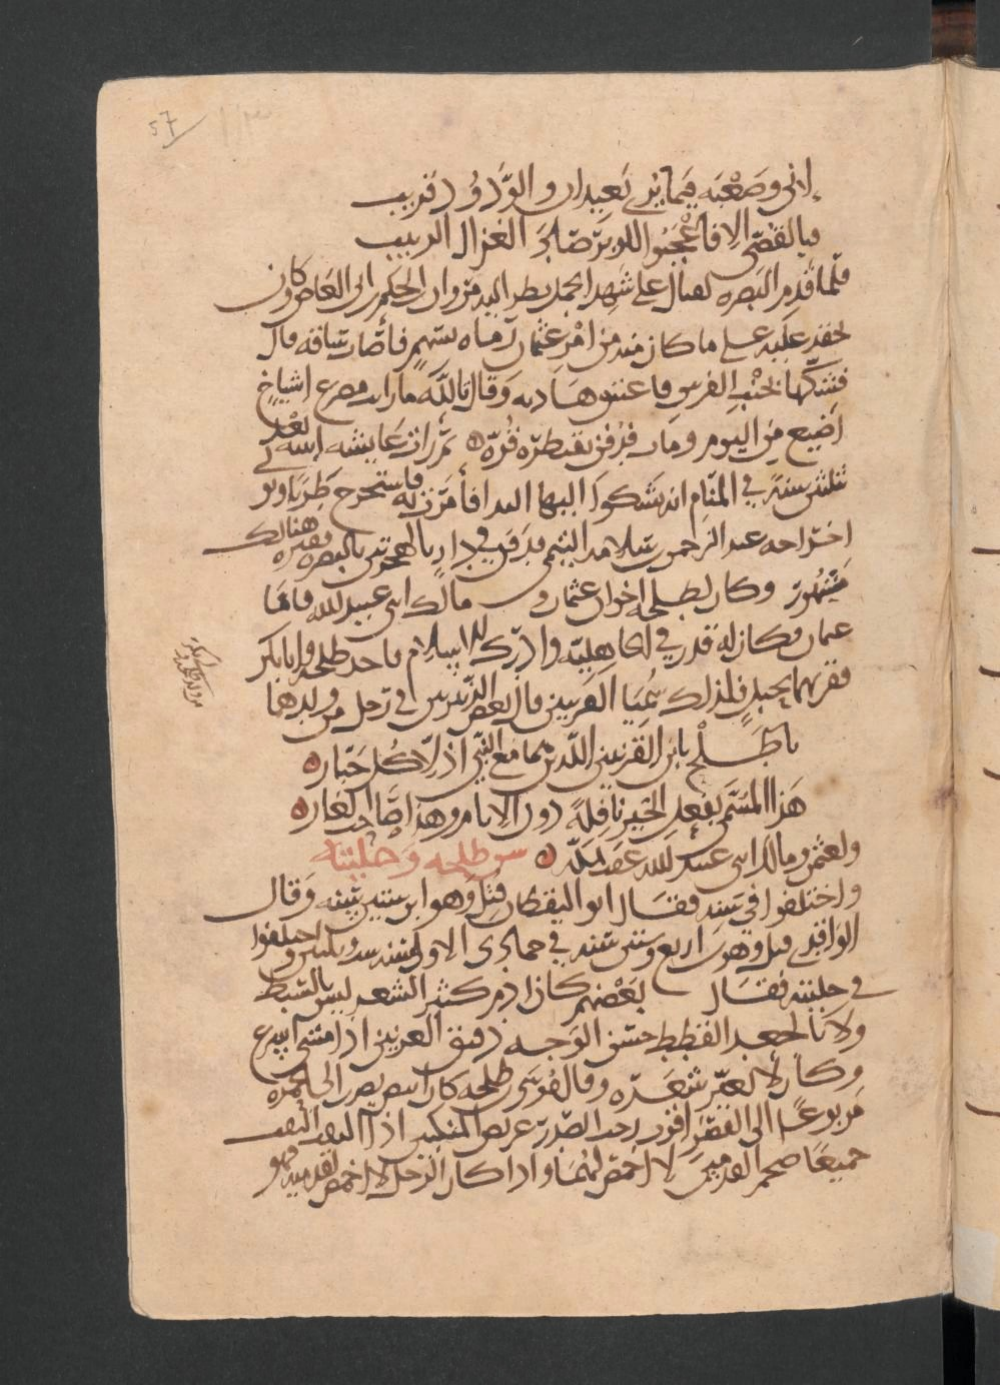 إني وضعته فيما يرى بعيدان والودود قريب
فيا لقصي الا فاعجبوا لان يرضا د الغزال الربيب
فلما قدم البصره لقتال علي شهد الجمل نظر اليه مروان بن الحكم بن ابي العاص وكان
يحقد عليه على ما كان منه من امر عثمان رماه بسهم فاصاب ساقه قال
فشكها بجنب الفرس فاعتنق هاديه وقال تالله ما رايت مصرع اشياخ
اضيع من اليوم ومات فدفن بقنطرة قرة ثم رات عايشه ابنته بعد
ثلثين سنة في المنام انه يشكوا اليها الندا فأمرت به فاستخرج طريا وتو
اخراجه عبد الرحمن بن سلامه التيمي فدفن في دار بالهجرتين بالبصره وقبره هنالك
مشهور وكان لطلحه اخوان عثمان و مالك ابني عبيد الله فاما
عثمان فكان له قدر في الجاهلية وادرك الاسلام فاخذ طلحه وابا بكر
فقرنهما بحبل فلذلك سميا القرينين قال بعض الزبيريين في رجل من ولدهما
يا طلح يا ابن القرينين اللذين هما مع النبي اذلا كل جبار
هذا المسمى بفعل الخير نافلة دون الانام وهذا صاحب الغار
ولعثمن ومالك ابني عبيد الله عقب بمكة سن طلحه وحليته
واختلفوا في سنه فقال ابو اليقظان قتل وهو ابن ستين سنه وقال
الواقدي قتل وهو بن اربع وستين سنه في جمادى الاولى سنه ست وثلثين واختلفوا
في حليته فقال بعضهم كان ادم كثير الشعر ليس بالسبط
ولا بالجعد القطط حسن الوجه دقيق العرنين اذا مشى اسرع
وكان لا يغير شعره وقال موسى بن طلحه كان ابيض يضرب الى الحمره
مربوعا الى القصر اقرب رحب الصدر عريض المنكبين اذا التفت التفت
جميعا ضخم القدمين لا اخمص لهما واذا كان الرجل لا اخمص لقدميه فهو